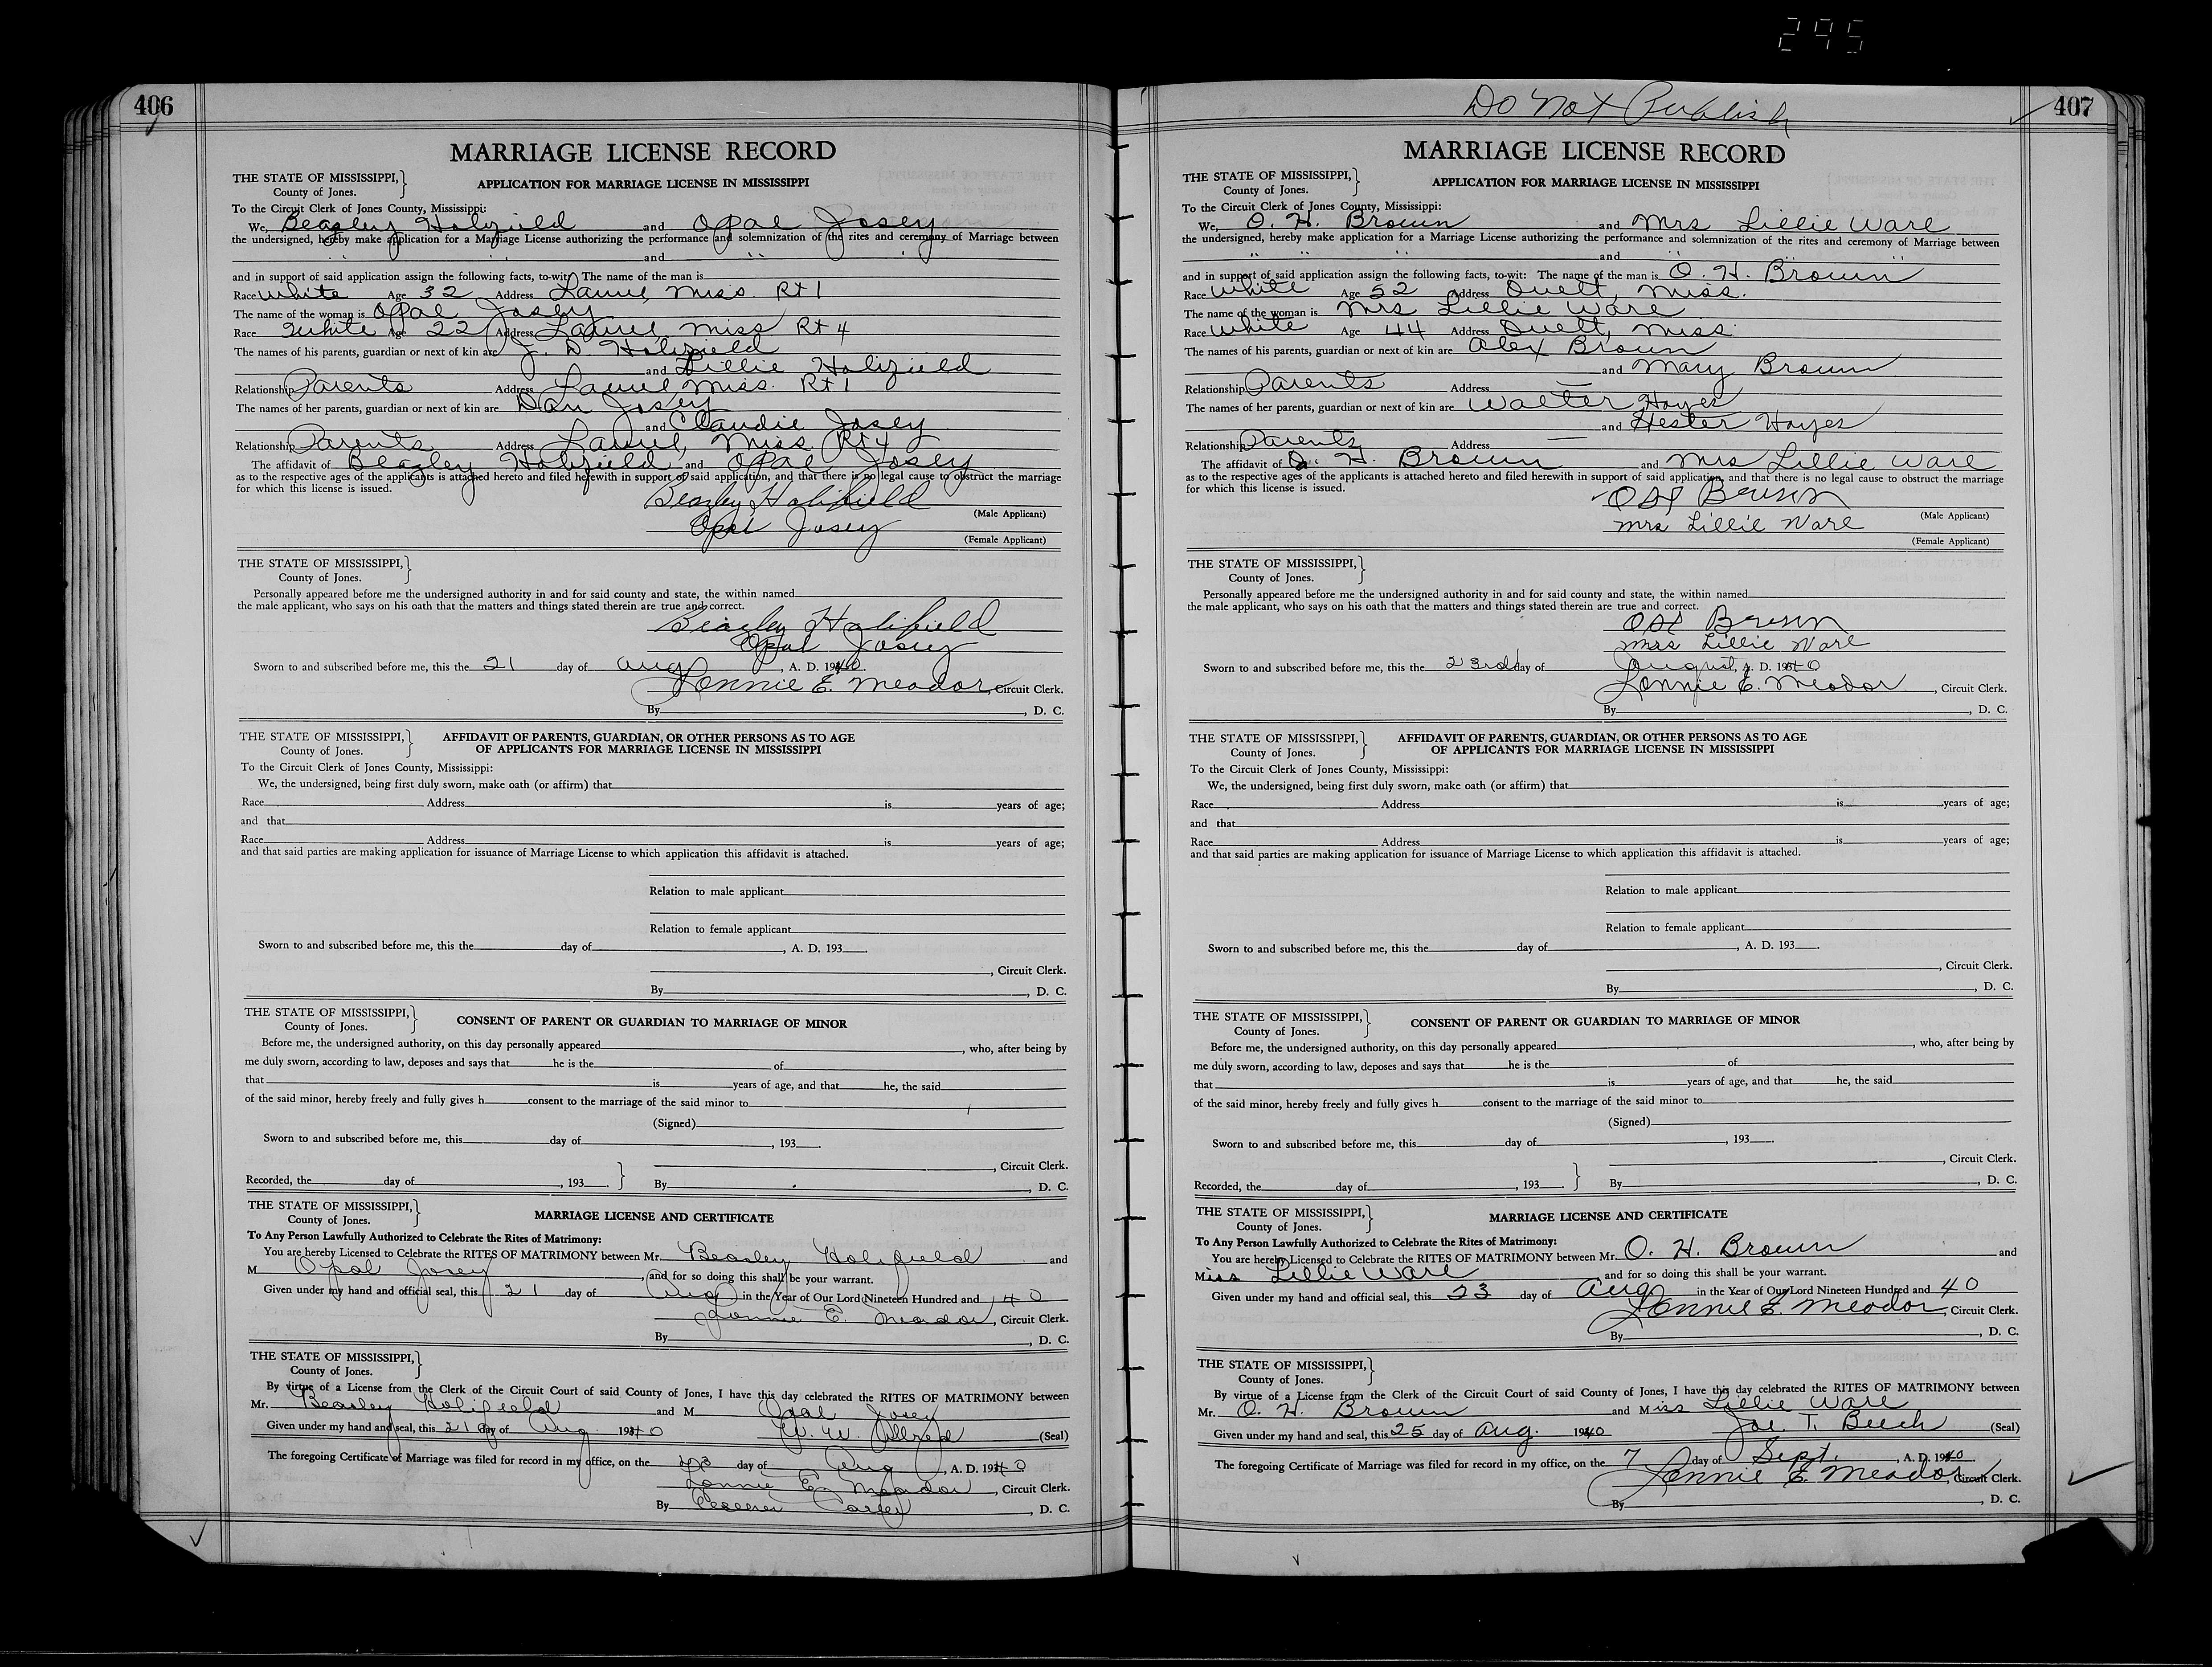 295
406
MARRIAGE LICENSE RECORD
THE STATE OF MISSISSIPPI,
County of Jones.
APPLICATION FOR MARRIAGE LICENSE IN MISSISSIPPI
To the Circuit Clerk of Jones County, Mississippi:
We, Beazley Holifield and Opal Josey
the undersigned, hereby make application for a Marriage License authorizing the performance and solemnization of the rites and ceremony of Marriage between
" " and " "
and in support of said application assign the following facts, to-wit: The name of the man is
Race White Age 32 Address Laurel, Miss. Rt 1
The name of the woman is Opal Josey
Race White Age 22 Address Laurel, Miss Rt 4
The names of his parents, guardian or next of kin are J. D. Holifield
and Lillie Holifield
Relationship Parents Address Laurel, Miss. Rt 1
The names of her parents, guardian or next of kin are Dan Josey
and Claudie Josey
Relationship Parents Address Laurel, Miss Rt 4
The affidavit of Beazley Holifield and Opal Josey
as to the respective ages of the applicants is attached hereto and filed herewith in support of said application, and that there is no legal cause to obstruct the marriage
for which this license is issued.
Beazley Holifield
(Male Applicant)
Opal Josey
(Female Applicant)
THE STATE OF MISSISSIPPI,
County of Jones.
Personally appeared before me the undersigned authority in and for said county and state, the within named
the male applicant, who says on his oath that the matters and things stated therein are true and correct.
Beazley Holifield
Opal Josey
Sworn to and subscribed before me, this the 21 day of Aug, A. D. 1940.
Lonnie E. Meador, Circuit Clerk.
By , D. C.
THE STATE OF MISSISSIPPI,
County of Jones.
AFFIDAVIT OF PARENTS, GUARDIAN, OR OTHER PERSONS AS TO AGE
OF APPLICANTS FOR MARRIAGE LICENSE IN MISSISSIPPI
To the Circuit Clerk of Jones County, Mississippi:
We, the undersigned, being first duly sworn, make oath (or affirm) that
Race Address is years of age;
and that
Race Address is years of age;
and that said parties are making application for issuance of Marriage License to which application this affidavit is attached.
Relation to male applicant
Relation to female applicant
Sworn to and subscribed before me, this the day of , A. D. 193 .
, Circuit Clerk.
By , D. C.
THE STATE OF MISSISSIPPI,
County of Jones.
CONSENT OF PARENT OR GUARDIAN TO MARRIAGE OF MINOR
Before me, the undersigned authority, on this day personally appeared , who, after being by
me duly sworn, according to law, deposes and says that he is the of
that is years of age, and that he, the said
of the said minor, hereby freely and fully gives h consent to the marriage of the said minor to
(Signed)
Sworn to and subscribed before me, this day of , 193 .
, Circuit Clerk.
Recorded, the day of , 193 . By , D. C.
THE STATE OF MISSISSIPPI,
County of Jones.
MARRIAGE LICENSE AND CERTIFICATE
To Any Person Lawfully Authorized to Celebrate the Rites of Matrimony:
You are hereby Licensed to Celebrate the RITES OF MATRIMONY between Mr. Beasley Holifield and
M Opal Josey , and for so doing this shall be your warrant.
Given under my hand and official seal, this 21 day of Aug in the Year of Our Lord Nineteen Hundred and 40
Lonnie E. Meador, Circuit Clerk.
By , D. C.
THE STATE OF MISSISSIPPI,
County of Jones.
By virtue of a License from the Clerk of the Circuit Court of said County of Jones, I have this day celebrated the RITES OF MATRIMONY between
Mr. Beasley Holifield and M Opal Josey
Given under my hand and seal, this 21 day of Aug. 1940 W. W. Allred (Seal)
The foregoing Certificate of Marriage was filed for record in my office, on the 23 day of Aug, A. D. 1940
Lonnie E. Meador, Circuit Clerk.
By Carter, D. C.
Do Not Publish
407
MARRIAGE LICENSE RECORD
THE STATE OF MISSISSIPPI,
County of Jones.
APPLICATION FOR MARRIAGE LICENSE IN MISSISSIPPI
To the Circuit Clerk of Jones County, Mississippi:
We, O. H. Brown and Mrs Lillie Ware
the undersigned, hereby make application for a Marriage License authorizing the performance and solemnization of the rites and ceremony of Marriage between
" " " and " "
and in support of said application assign the following facts, to-wit: The name of the man is O. H. Brown
Race White Age 52 Address Ovett, Miss.
The name of the woman is Mrs Lillie Ware
Race White Age 44 Address Ovett, Miss.
The names of his parents, guardian or next of kin are Alex Brown
and Mary Brown
Relationship Parents Address —
The names of her parents, guardian or next of kin are Walter Hayes
and Hester Hayes
Relationship Parents Address —
The affidavit of O. H. Brown and Mrs Lillie Ware
as to the respective ages of the applicants is attached hereto and filed herewith in support of said application, and that there is no legal cause to obstruct the marriage
for which this license is issued.
O H Brown
(Male Applicant)
Mrs Lillie Ware
(Female Applicant)
THE STATE OF MISSISSIPPI,
County of Jones.
Personally appeared before me the undersigned authority in and for said county and state, the within named
the male applicant, who says on his oath that the matters and things stated therein are true and correct.
O H Brown
Mrs Lillie Ware
Sworn to and subscribed before me, this the 23rd day of August, A. D. 1940
Lonnie E. Meador, Circuit Clerk.
By , D. C.
THE STATE OF MISSISSIPPI,
County of Jones.
AFFIDAVIT OF PARENTS, GUARDIAN, OR OTHER PERSONS AS TO AGE
OF APPLICANTS FOR MARRIAGE LICENSE IN MISSISSIPPI
To the Circuit Clerk of Jones County, Mississippi:
We, the undersigned, being first duly sworn, make oath (or affirm) that
Race Address is years of age;
and that
Race Address is years of age;
and that said parties are making application for issuance of Marriage License to which application this affidavit is attached.
Relation to male applicant
Relation to female applicant
Sworn to and subscribed before me, this the day of , A. D. 193 .
, Circuit Clerk.
By , D. C.
THE STATE OF MISSISSIPPI,
County of Jones.
CONSENT OF PARENT OR GUARDIAN TO MARRIAGE OF MINOR
Before me, the undersigned authority, on this day personally appeared , who, after being by
me duly sworn, according to law, deposes and says that he is the of
that is years of age, and that he, the said
of the said minor, hereby freely and fully gives h consent to the marriage of the said minor to
(Signed)
Sworn to and subscribed before me, this day of , 193 .
, Circuit Clerk.
Recorded, the day of , 193 . By , D. C.
THE STATE OF MISSISSIPPI,
County of Jones.
MARRIAGE LICENSE AND CERTIFICATE
To Any Person Lawfully Authorized to Celebrate the Rites of Matrimony:
You are hereby Licensed to Celebrate the RITES OF MATRIMONY between Mr. O. H. Brown and
Miss Lillie Ware , and for so doing this shall be your warrant.
Given under my hand and official seal, this 23 day of Aug in the Year of Our Lord Nineteen Hundred and 40
Lonnie E. Meador, Circuit Clerk.
By , D. C.
THE STATE OF MISSISSIPPI,
County of Jones.
By virtue of a License from the Clerk of the Circuit Court of said County of Jones, I have this day celebrated the RITES OF MATRIMONY between
Mr. O. H. Brown and Miss Lillie Ware
Given under my hand and seal, this 25 day of Aug. 1940 Joe T. Beech (Seal)
The foregoing Certificate of Marriage was filed for record in my office, on the 7 day of Sept., A. D. 1940.
Lonnie E. Meador, Circuit Clerk.
By , D. C.